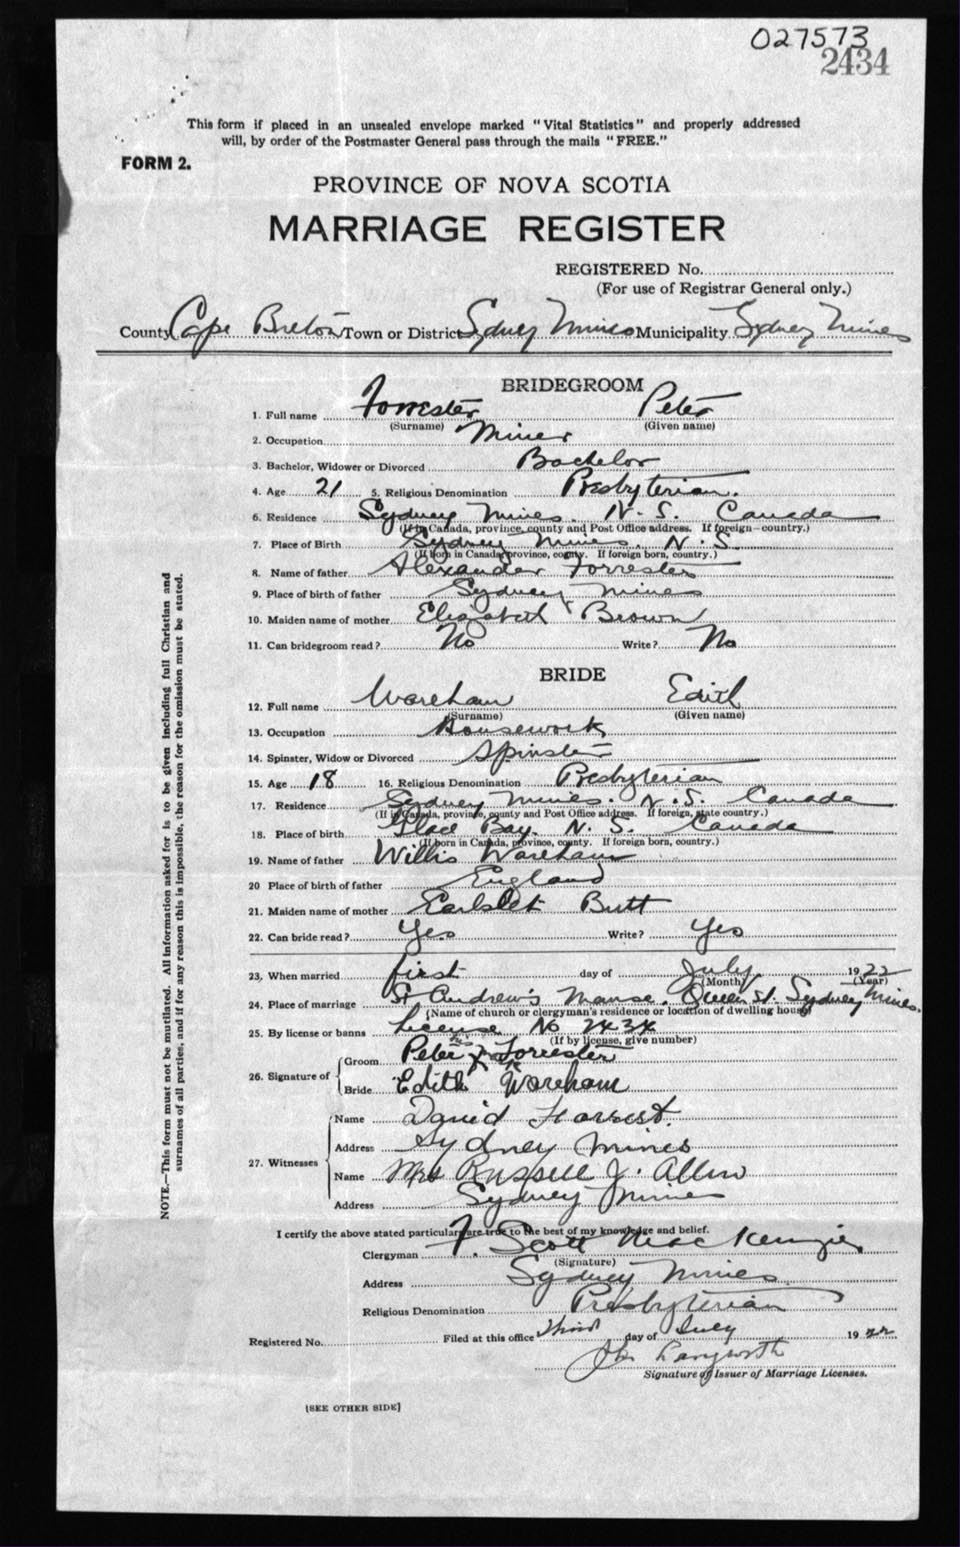 027573
2434
This form if placed in an unsealed envelope marked "Vital Statistics" and properly addressed
will, by order of the Postmaster General pass through the mails "FREE."
FORM 2.
PROVINCE OF NOVA SCOTIA
MARRIAGE REGISTER
REGISTERED No.
(For use of Registrar General only.)
County Cape Breton Town or District Sydney Mines Municipality Sydney Mines
BRIDEGROOM
1. Full name Forrester Peter
(Surname) (Given name)
2. Occupation Miner
3. Bachelor, Widower or Divorced Bachelor
4. Age 21 5. Religious Denomination Presbyterian.
6. Residence Sydney Mines. N. S. Canada
(If in Canada, province, county and Post Office address. If foreign—country.)
7. Place of Birth Sydney Mines. N. S.
(If born in Canada, province, county. If foreign born, country.)
8. Name of father Alexander Forrester
9. Place of birth of father Sydney Mines
10. Maiden name of mother Elizabeth Brown
11. Can bridegroom read? No Write? No
BRIDE
12. Full name Wareham Edith
(Surname) (Given name)
13. Occupation Housework
14. Spinster, Widow or Divorced Spinster
15. Age 18 16. Religious Denomination Presbyterian
17. Residence Sydney Mines. N. S. Canada
(If in Canada, province, county and Post Office address. If foreign, state country.)
18. Place of birth Glace Bay. N. S. Canada
(If born in Canada, province, county. If foreign born, country.)
19. Name of father Willis Wareham
20 Place of birth of father England
21. Maiden name of mother Butt
22. Can bride read? Yes Write? Yes
23. When married first day of July 1922
(Month) (Year)
24. Place of marriage St Andrew's Manse. Queen St. Sydney Mines.
(Name of church or clergyman's residence or location of dwelling house)
25. By license or banns License No 2434
(If by license, give number)
26. Signature of
Groom Peter his x mark Forrester
Bride Edith Wareham
27. Witnesses
Name David Forrest.
Address Sydney Mines
Name Mrs Russell J. Allen
Address Sydney Mines
I certify the above stated particulars are true to the best of my knowledge and belief.
Clergyman F. Scott MacKenzie
(Signature)
Address Sydney Mines
Religious Denomination Presbyterian
Registered No. Filed at this office third day of July 1922
Langworth
Signature of Issuer of Marriage Licenses.
[SEE OTHER SIDE]
NOTE.—This form must not be mutilated. All information asked for is to be given including full Christian and
surnames of all parties, and if for any reason this is impossible, the reason for the omission must be stated.